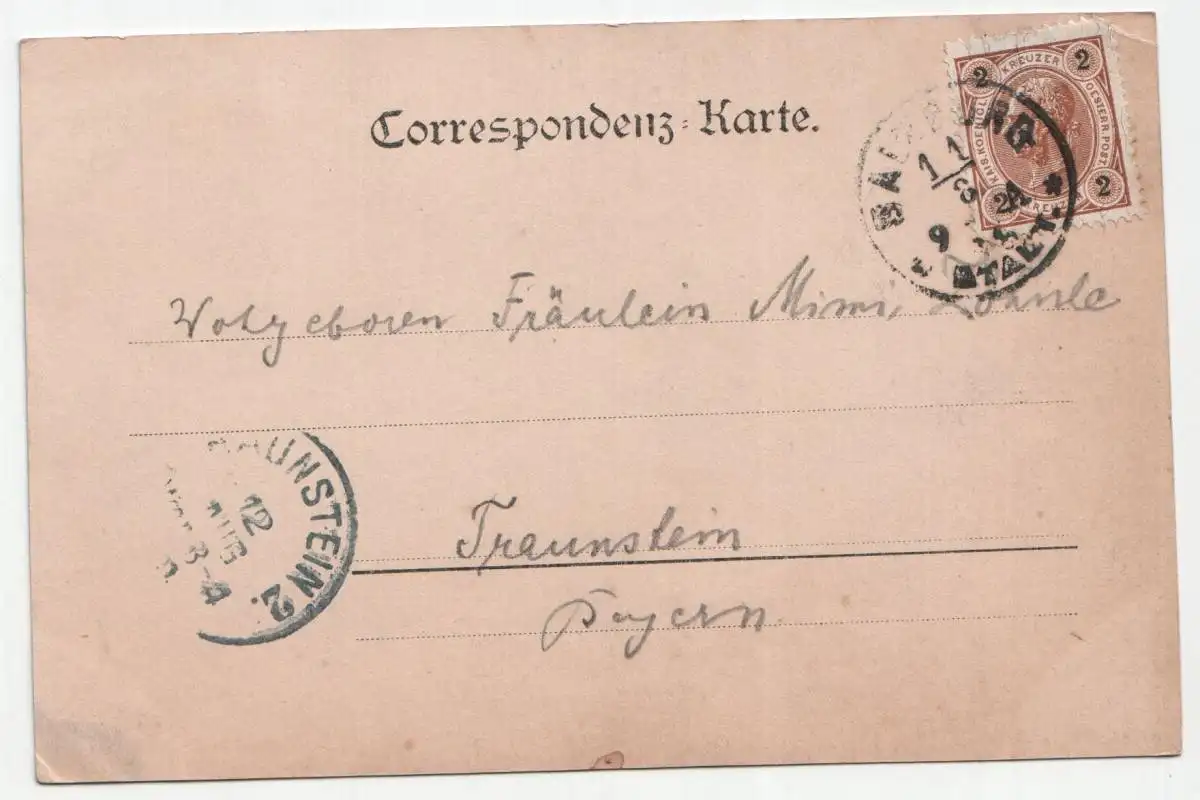 Correspondenz-Karte.
2 KREUZER 2
KAIS. KOENIGL. OESTERR. POST.
2 2
SALZBURG
11
8
9
STADT.
Wolgeboren Fräulein Mimi
TRAUNSTEIN 2.
12
AUG
3-4
Traunstein
Bayern